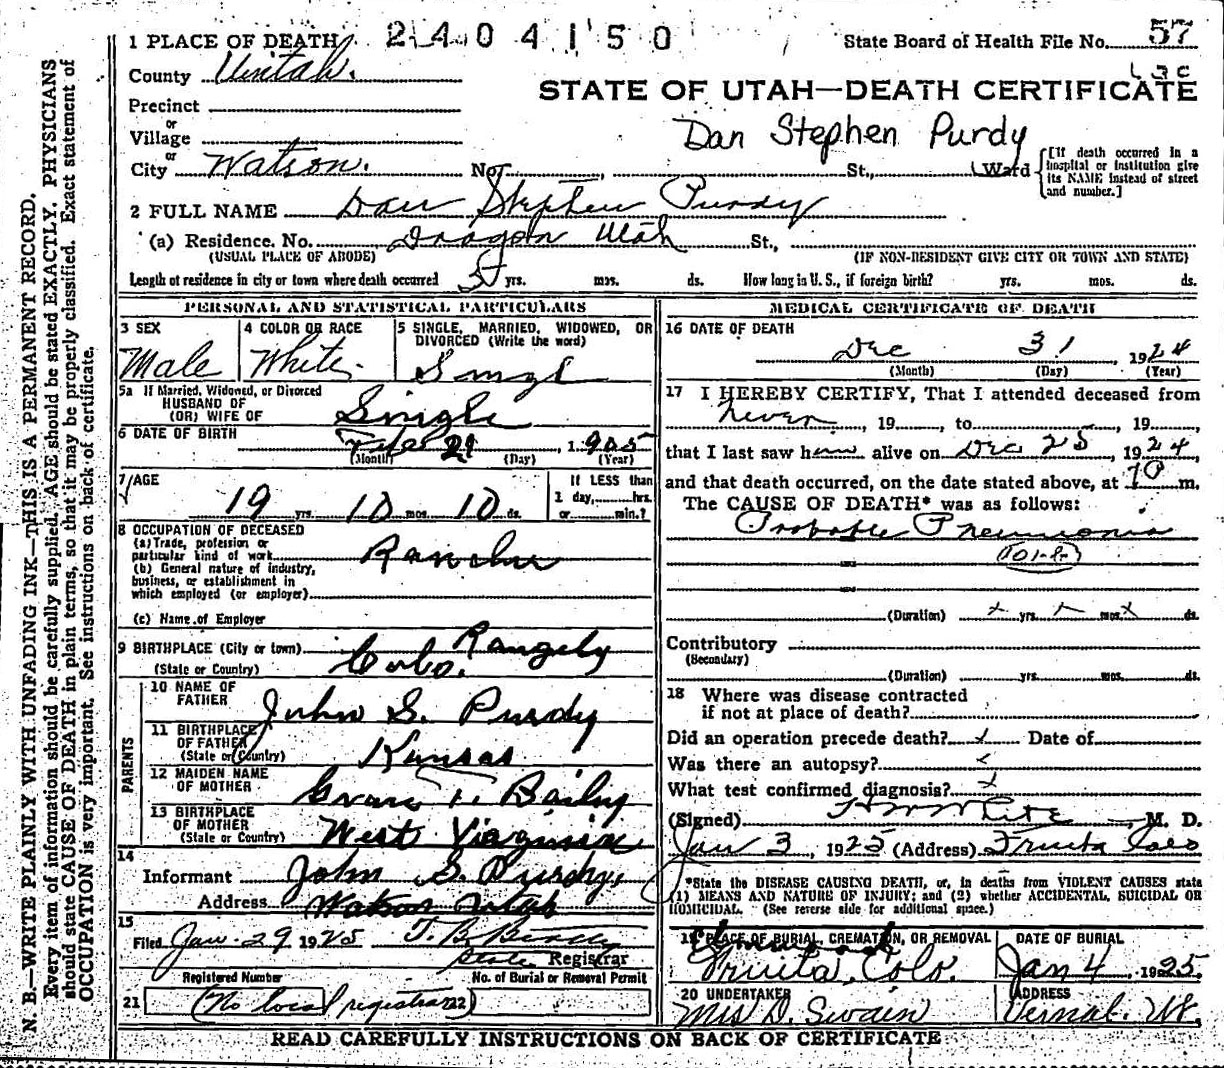 1 PLACE OF DEATH
2404150
State Board of Health File No. 57
County Uintah.
STATE OF UTAH—DEATH CERTIFICATE
Precinct
or
Village
Dan Stephen Purdy
or
City Watson. No. , St., Ward
[If death occurred in a hospital or institution give its NAME instead of street and number.]
2 FULL NAME Dan Stephen Purdy
(a) Residence. No. Dragon Utah St.,
(USUAL PLACE OF ABODE) (IF NON-RESIDENT GIVE CITY OR TOWN AND STATE)
Length of residence in city or town where death occurred 5 yrs. mos. ds. How long in U. S., if foreign birth? yrs. mos. ds.
PERSONAL AND STATISTICAL PARTICULARS
3 SEX
Male
4 COLOR OR RACE
White
5 SINGLE, MARRIED, WIDOWED, OR
DIVORCED (Write the word)
Single
5a If Married, Widowed, or Divorced
HUSBAND OF
(OR) WIFE OF Single
6 DATE OF BIRTH 21 1905
(Month) (Day) (Year)
7 AGE
19 yrs. 10 mos. 10 ds.
If LESS than
1 day, hrs.
or min.?
8 OCCUPATION OF DECEASED
(a) Trade, profession or
particular kind of work Rancher
(b) General nature of industry,
business, or establishment in
which employed (or employer)
(c) Name of Employer
9 BIRTHPLACE (City or town) Rangely
(State or Country) Colo.
PARENTS
10 NAME OF
FATHER John S. Purdy
11 BIRTHPLACE
OF FATHER
(State or Country) Kansas
12 MAIDEN NAME
OF MOTHER Grace T. Baily
13 BIRTHPLACE
OF MOTHER
(State or Country) West Virginia
14
Informant John S. Purdy.
Address Watson Utah
15
Filed Jan. 29 1925 T. B.
State Registrar
Registered Number No. of Burial or Removal Permit
21 (No local registrar) 22
MEDICAL CERTIFICATE OF DEATH
16 DATE OF DEATH
Dec 31, 1924
(Month) (Day) (Year)
17 I HEREBY CERTIFY, That I attended deceased from
never, 19 , to , 19 ,
that I last saw him alive on Dec 25, 1924,
and that death occurred, on the date stated above, at m.
The CAUSE OF DEATH* was as follows:
Probable Pneumonia
(Duration) x yrs. x mos. x ds.
Contributory
(Secondary)
(Duration) yrs. mos. ds.
18 Where was disease contracted
if not at place of death?
Did an operation precede death? x Date of
Was there an autopsy? x
What test confirmed diagnosis? x
(Signed) White, M. D.
Jan 3, 1925 (Address) Fruita Colo
*State the DISEASE CAUSING DEATH, or, in deaths from VIOLENT CAUSES state
(1) MEANS AND NATURE OF INJURY; and (2) whether ACCIDENTAL, SUICIDAL OR
HOMICIDAL. (See reverse side for additional space.)
19 PLACE OF BURIAL, CREMATION, OR REMOVAL
Elmwood
Fruita, Colo.
DATE OF BURIAL
Jan 4, 1925.
20 UNDERTAKER
Mrs D. Swain
ADDRESS
Vernal. Ut.
READ CAREFULLY INSTRUCTIONS ON BACK OF CERTIFICATE
N. B.—WRITE PLAINLY WITH UNFADING INK—THIS IS A PERMANENT RECORD.
Every item of information should be carefully supplied. AGE should be stated EXACTLY. PHYSICIANS
should state CAUSE OF DEATH in plain terms, so that it may be properly classified. Exact statement of
OCCUPATION is very important. See instructions on back of certificate.